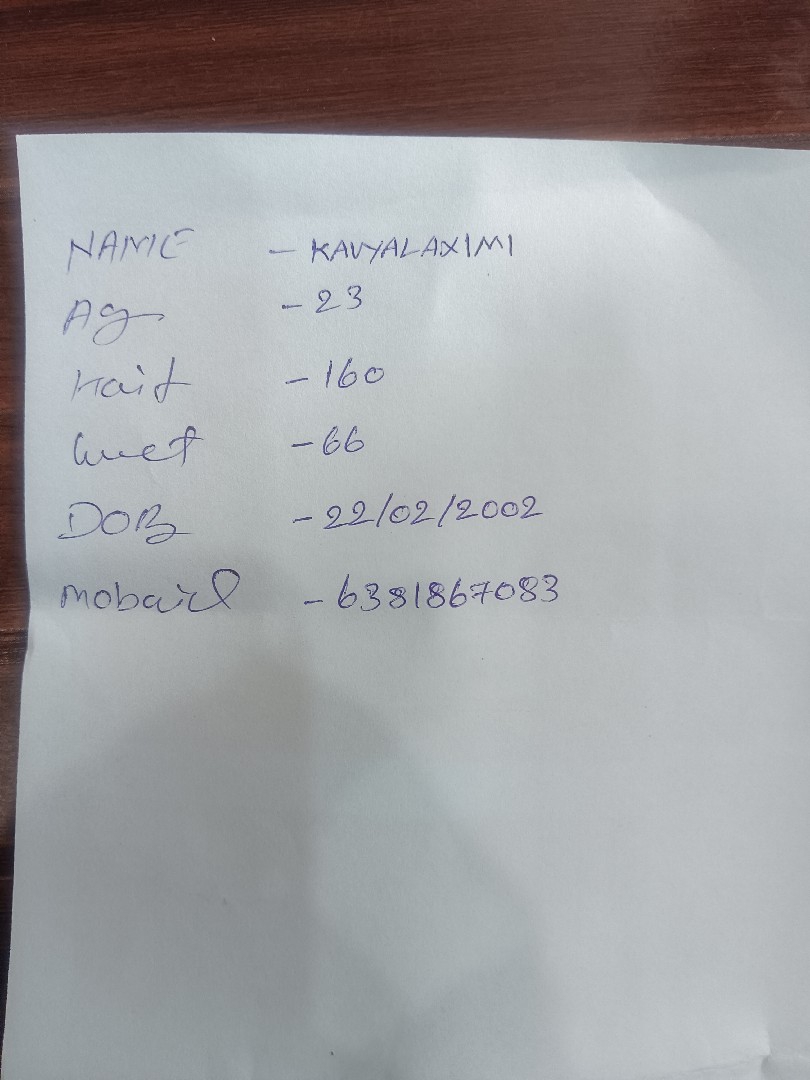 NAME - KAVYALAXIMI
Ag - 23
Hait - 160
Wuet - 66
DOB - 22/02/2002
mobail - 6381867083